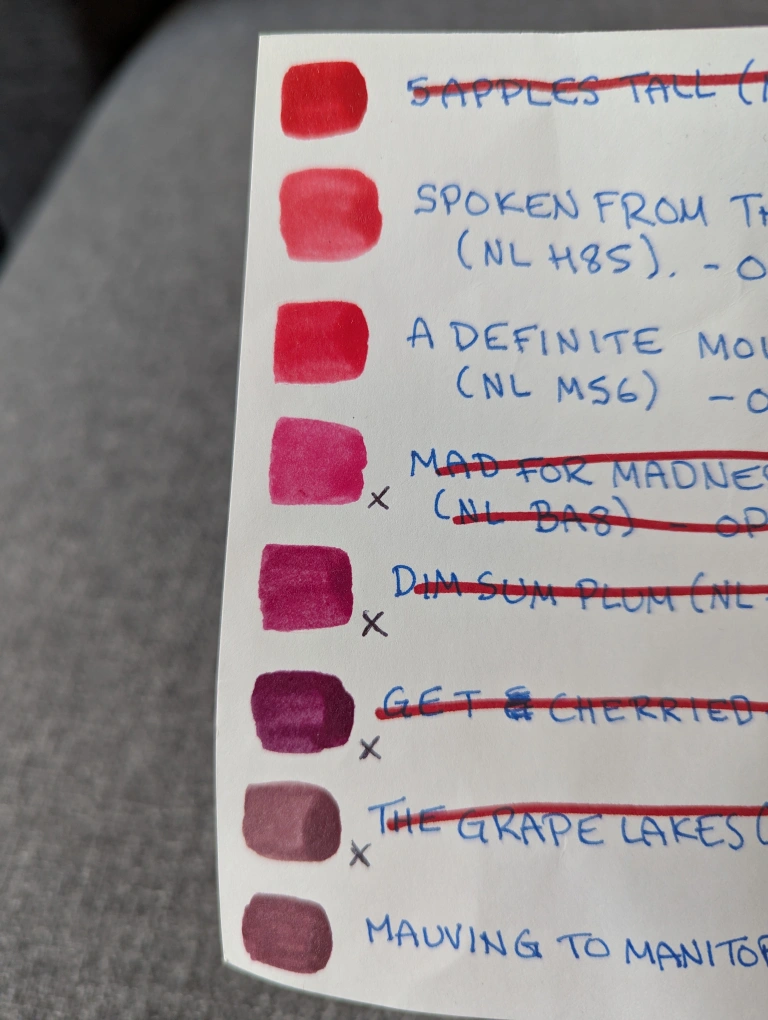 5 APPLES TALL (
SPOKEN FROM
(NL H85). -
A DEFINITE
(NL M56) -
× MAD FOR
(NL BA8) -
× DIM SUM PLUM (NL
× GET CHERRIED
× THE GRAPE LAKES (
MAUVING TO